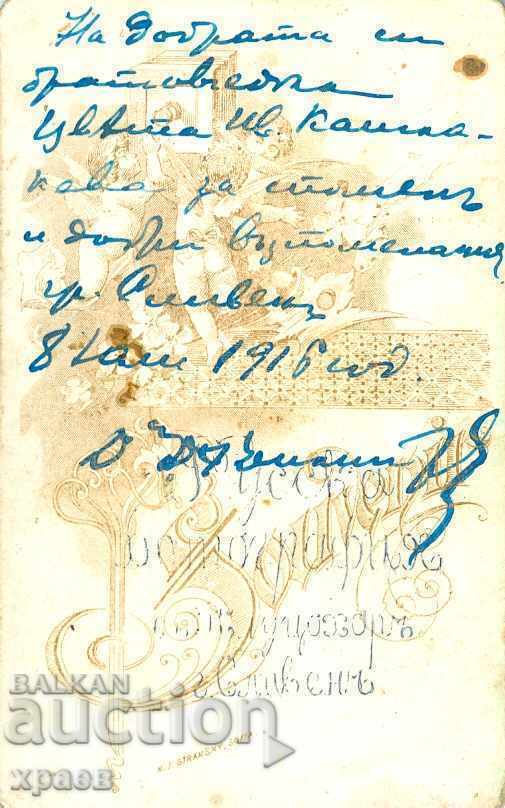 На добрата си
братовчедка
Цвѣта Ив. Кашла-
кева за споменъ
и добри възпоменания
гр. Сливенъ
8 Юли 1916 год.
Руска
фотография
г. Сливенъ
BALKAN
auction
храов
K. J. STRANSKY, SOFIA